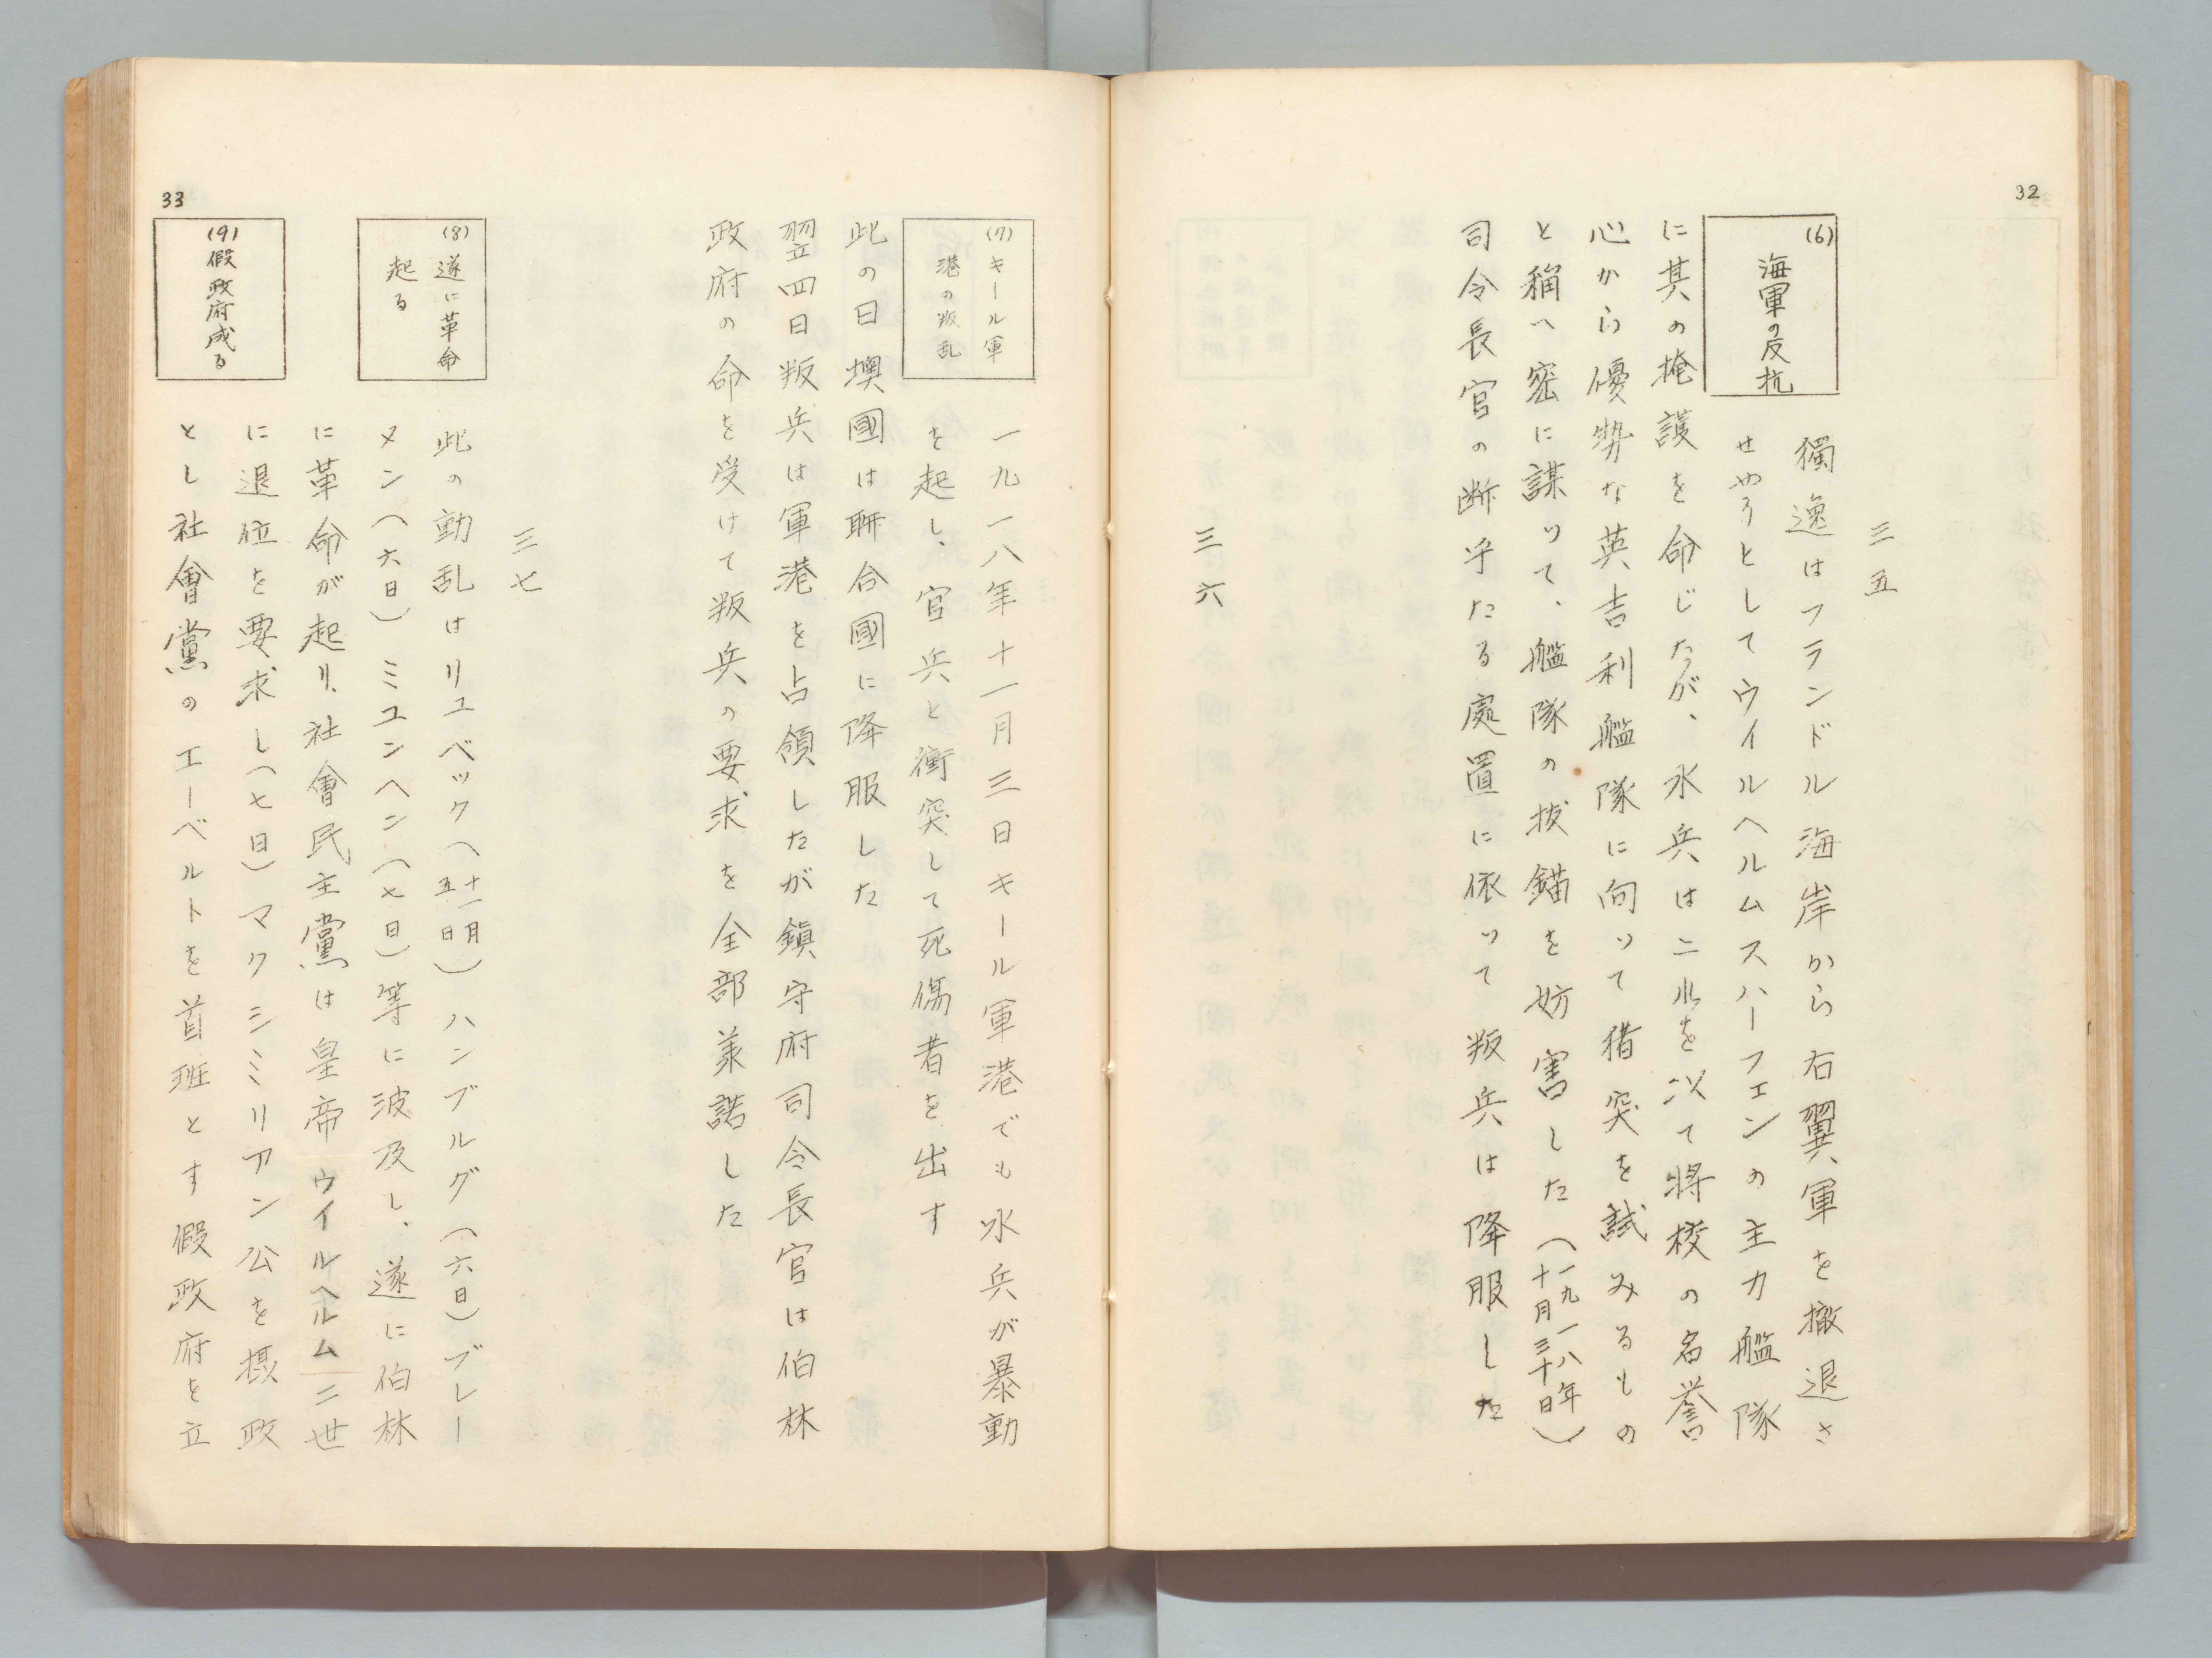 32
三五
(6)
海軍の反抗
獨逸はフランドル海岸から右翼軍を撤退さ
せやうとしてウイルヘルムスハーフェンの主力艦隊
に其の掩護を命じたが、水兵は二ルを以て將校の名誉
心から優勢な英吉利艦隊に向って猪突を試みるもの
と稱へ密に謀って、艦隊の拔錨を妨害した(一九一八年
十月三十日)
司令長官の断乎たる處置に依って叛兵は降服した
三六
(7)キール軍
港の叛乱
一九一八年十一月三日キール軍港でも水兵が暴動
を起し、官兵と衝突して死傷者を出す
此の日墺國は聯合國に降服した
翌四日叛兵は軍港を占領したが鎭守府司令長官は伯林
政府の命を受けて叛兵の要求を全部羕諾した
三七
(8)遂に革命
起る
此の動乱はリユベック(十一月
五日)ハンブルグ(六日)ブレー
メン(六日)ミユンヘン(七日)等に波及し、遂に伯林
に革命が起り、社會民主黨は皇帝ウイルヘルム二世
に退位を要求し(七日)マクシミリアン公を摂政
とし社會黨のエーベルトを首班とす假政府を立
(9)假政府成る
33